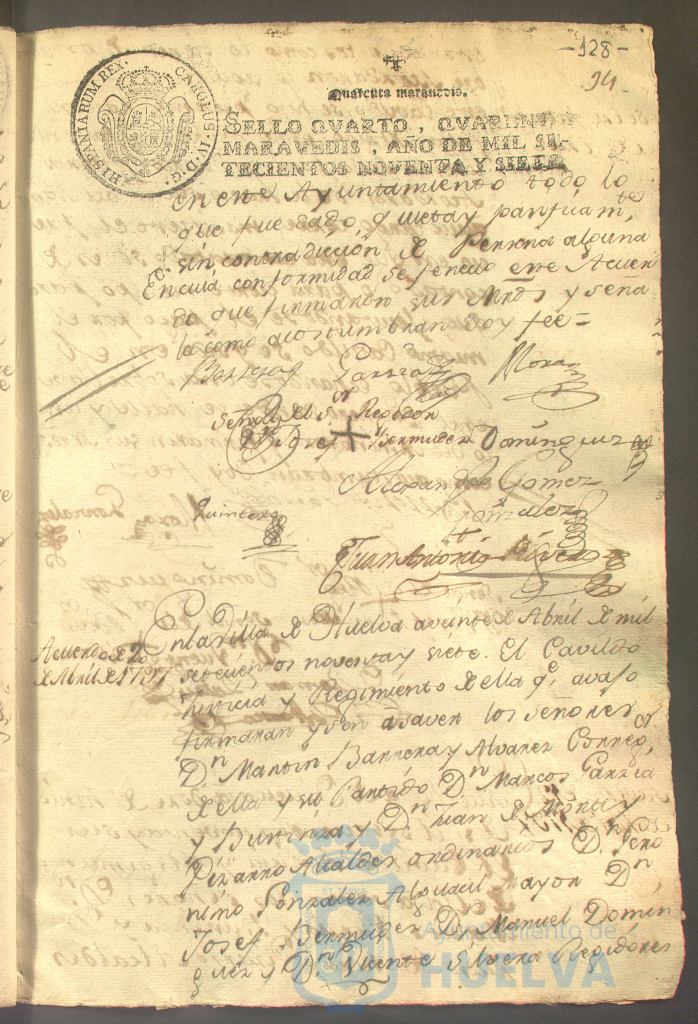 -128-
94.
HISPANIARUM REX.
CAROLUS IV. D. G.
Quarenta maravedis.
SELLO QVARTO, QVARENTA
MARAVEDIS, AÑO DE MIL SE-
TECIENTOS NOVENTA Y SIETE
en este Ayuntamiento todo lo
que fue dado, quieta y pasificam.te
sin contradiccion de Persona alguna
En cuia conformidad se feneció este Acuer
do que firmaron sus Mrds y sena
la como acostumbran doy fee =
Barrera Garzia Mora
Señal del Sor Regidor
Dn Josef + Bermudez Dominguez
Alexandro Gomez
Gonzalez
Quintero
Juan Antonio
Acuerdo de 20
de Abril de 1797
En la Villa de Huelva a veinte de Abril de mil
setecientos noventa y siete. El Cavildo
Justicia y Regimiento de ella qe. avajo
firmaran y son a saver los señores
Dn Martin Barrera y Alvarez Correg.or
de ella y su Partido Dn Marcos Garzia
y Dn Juan de Mora y
Pizarro Alcaldes ordinarios Dn Gero
nimo Gonzalez Alguacil mayor Dn
Josef Bermudez Dn Manuel Domin
guez y Dn Vicente Silvera Regidores
Ayuntamiento de
HUELVA